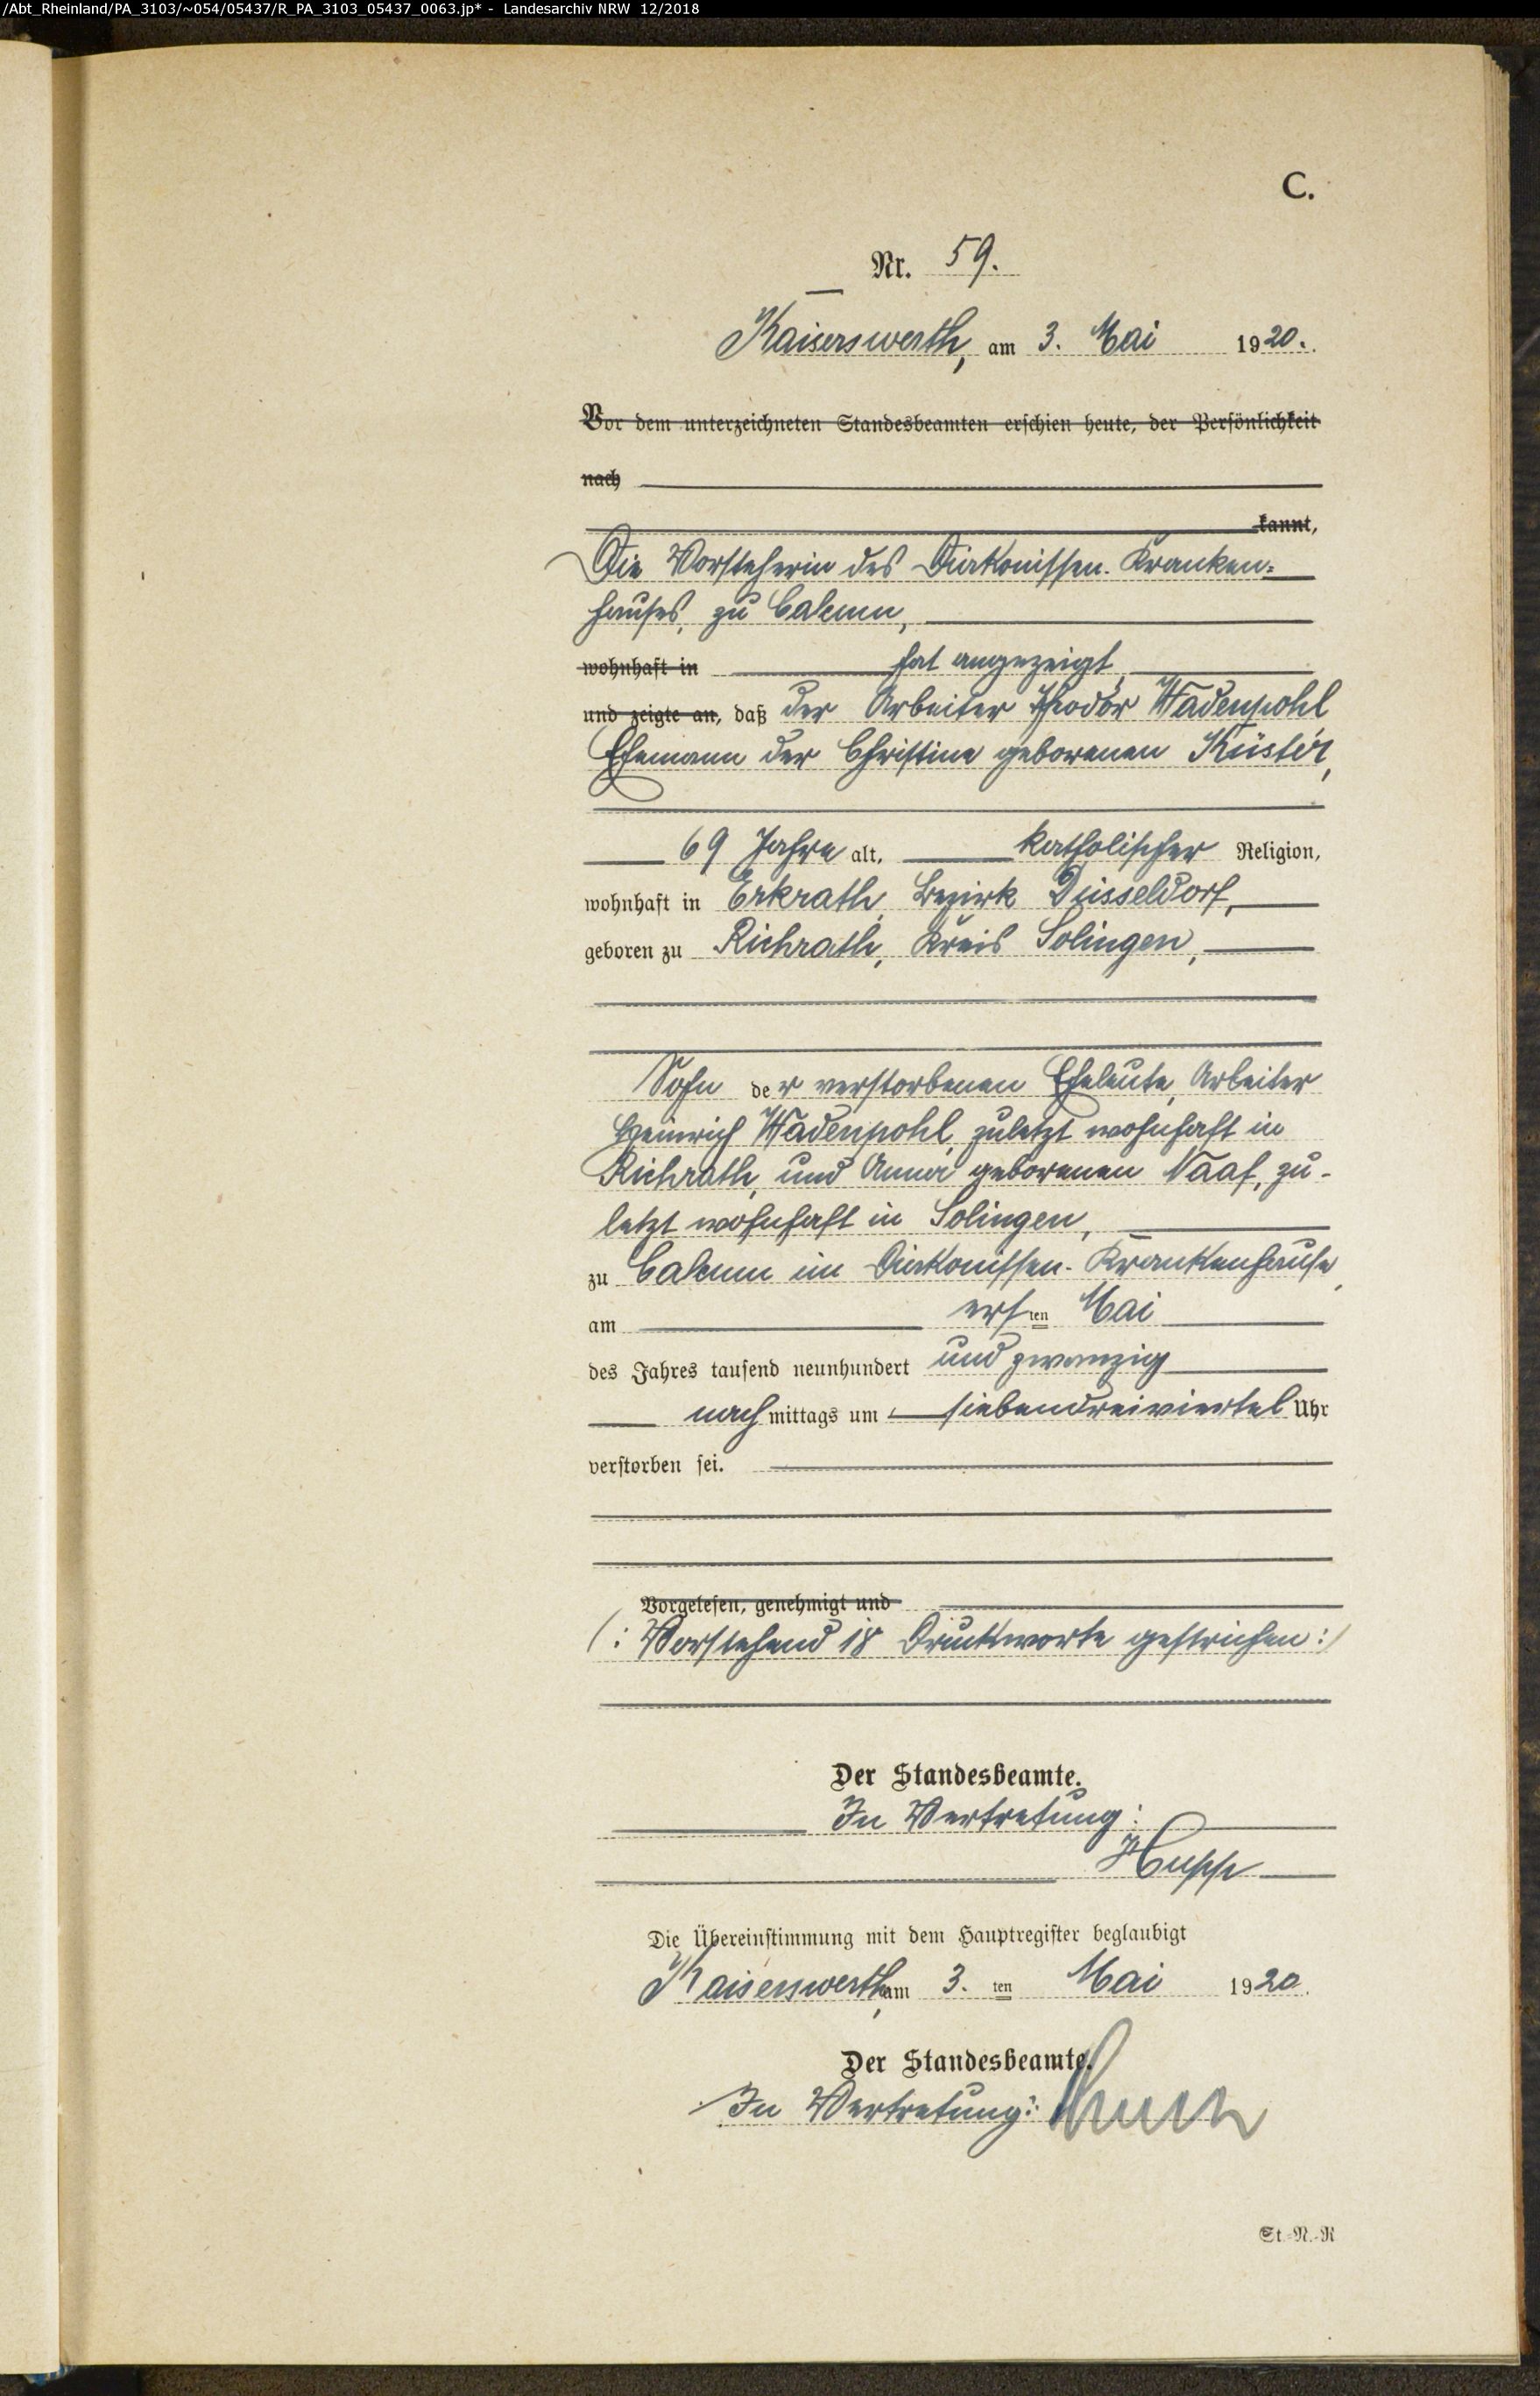 /Abt_Rheinland/PA_3103/~054/05437/R_PA_3103_05437_0063.jp* - Landesarchiv NRW 12/2018
C.
Nr. 59.
Kaiserswerth, am 3. Mai 1920.
Vor dem unterzeichneten Standesbeamten erschien heute, der Persönlichkeit
nach
kannt,
Die Vorsteherin des Diakonissen-Kranken-
hauses, zu Calcum,
wohnhaft in hat angezeigt,
und zeigte an, daß der Arbeiter Theodor Wadenpohl
Ehemann der Christine geborenen Küster,
69 Jahre alt, katholischer Religion,
wohnhaft in Erkrath, Bezirk Düsseldorf,
geboren zu Richrath, Kreis Solingen,
Sohn der verstorbenen Eheleute, Arbeiter
Heinrich Wadenpohl, zuletzt wohnhaft in
Richrath, und Anna geborenen Naaf, zu-
letzt wohnhaft in Solingen,
zu Calcum im Diakonissen-Krankenhause,
am ersten Mai
des Jahres tausend neunhundert und zwanzig
nachmittags um siebendreiviertel Uhr
verstorben sei.
Vorgelesen, genehmigt und
(: Vorstehend 18 Druckworte gestrichen :)
Der Standesbeamte.
In Vertretung:
Hupp
Die Übereinstimmung mit dem Hauptregister beglaubigt
Kaiserswerth, am 3. ten Mai 1920.
Der Standesbeamte.
In Vertretung:
St.-N.-R